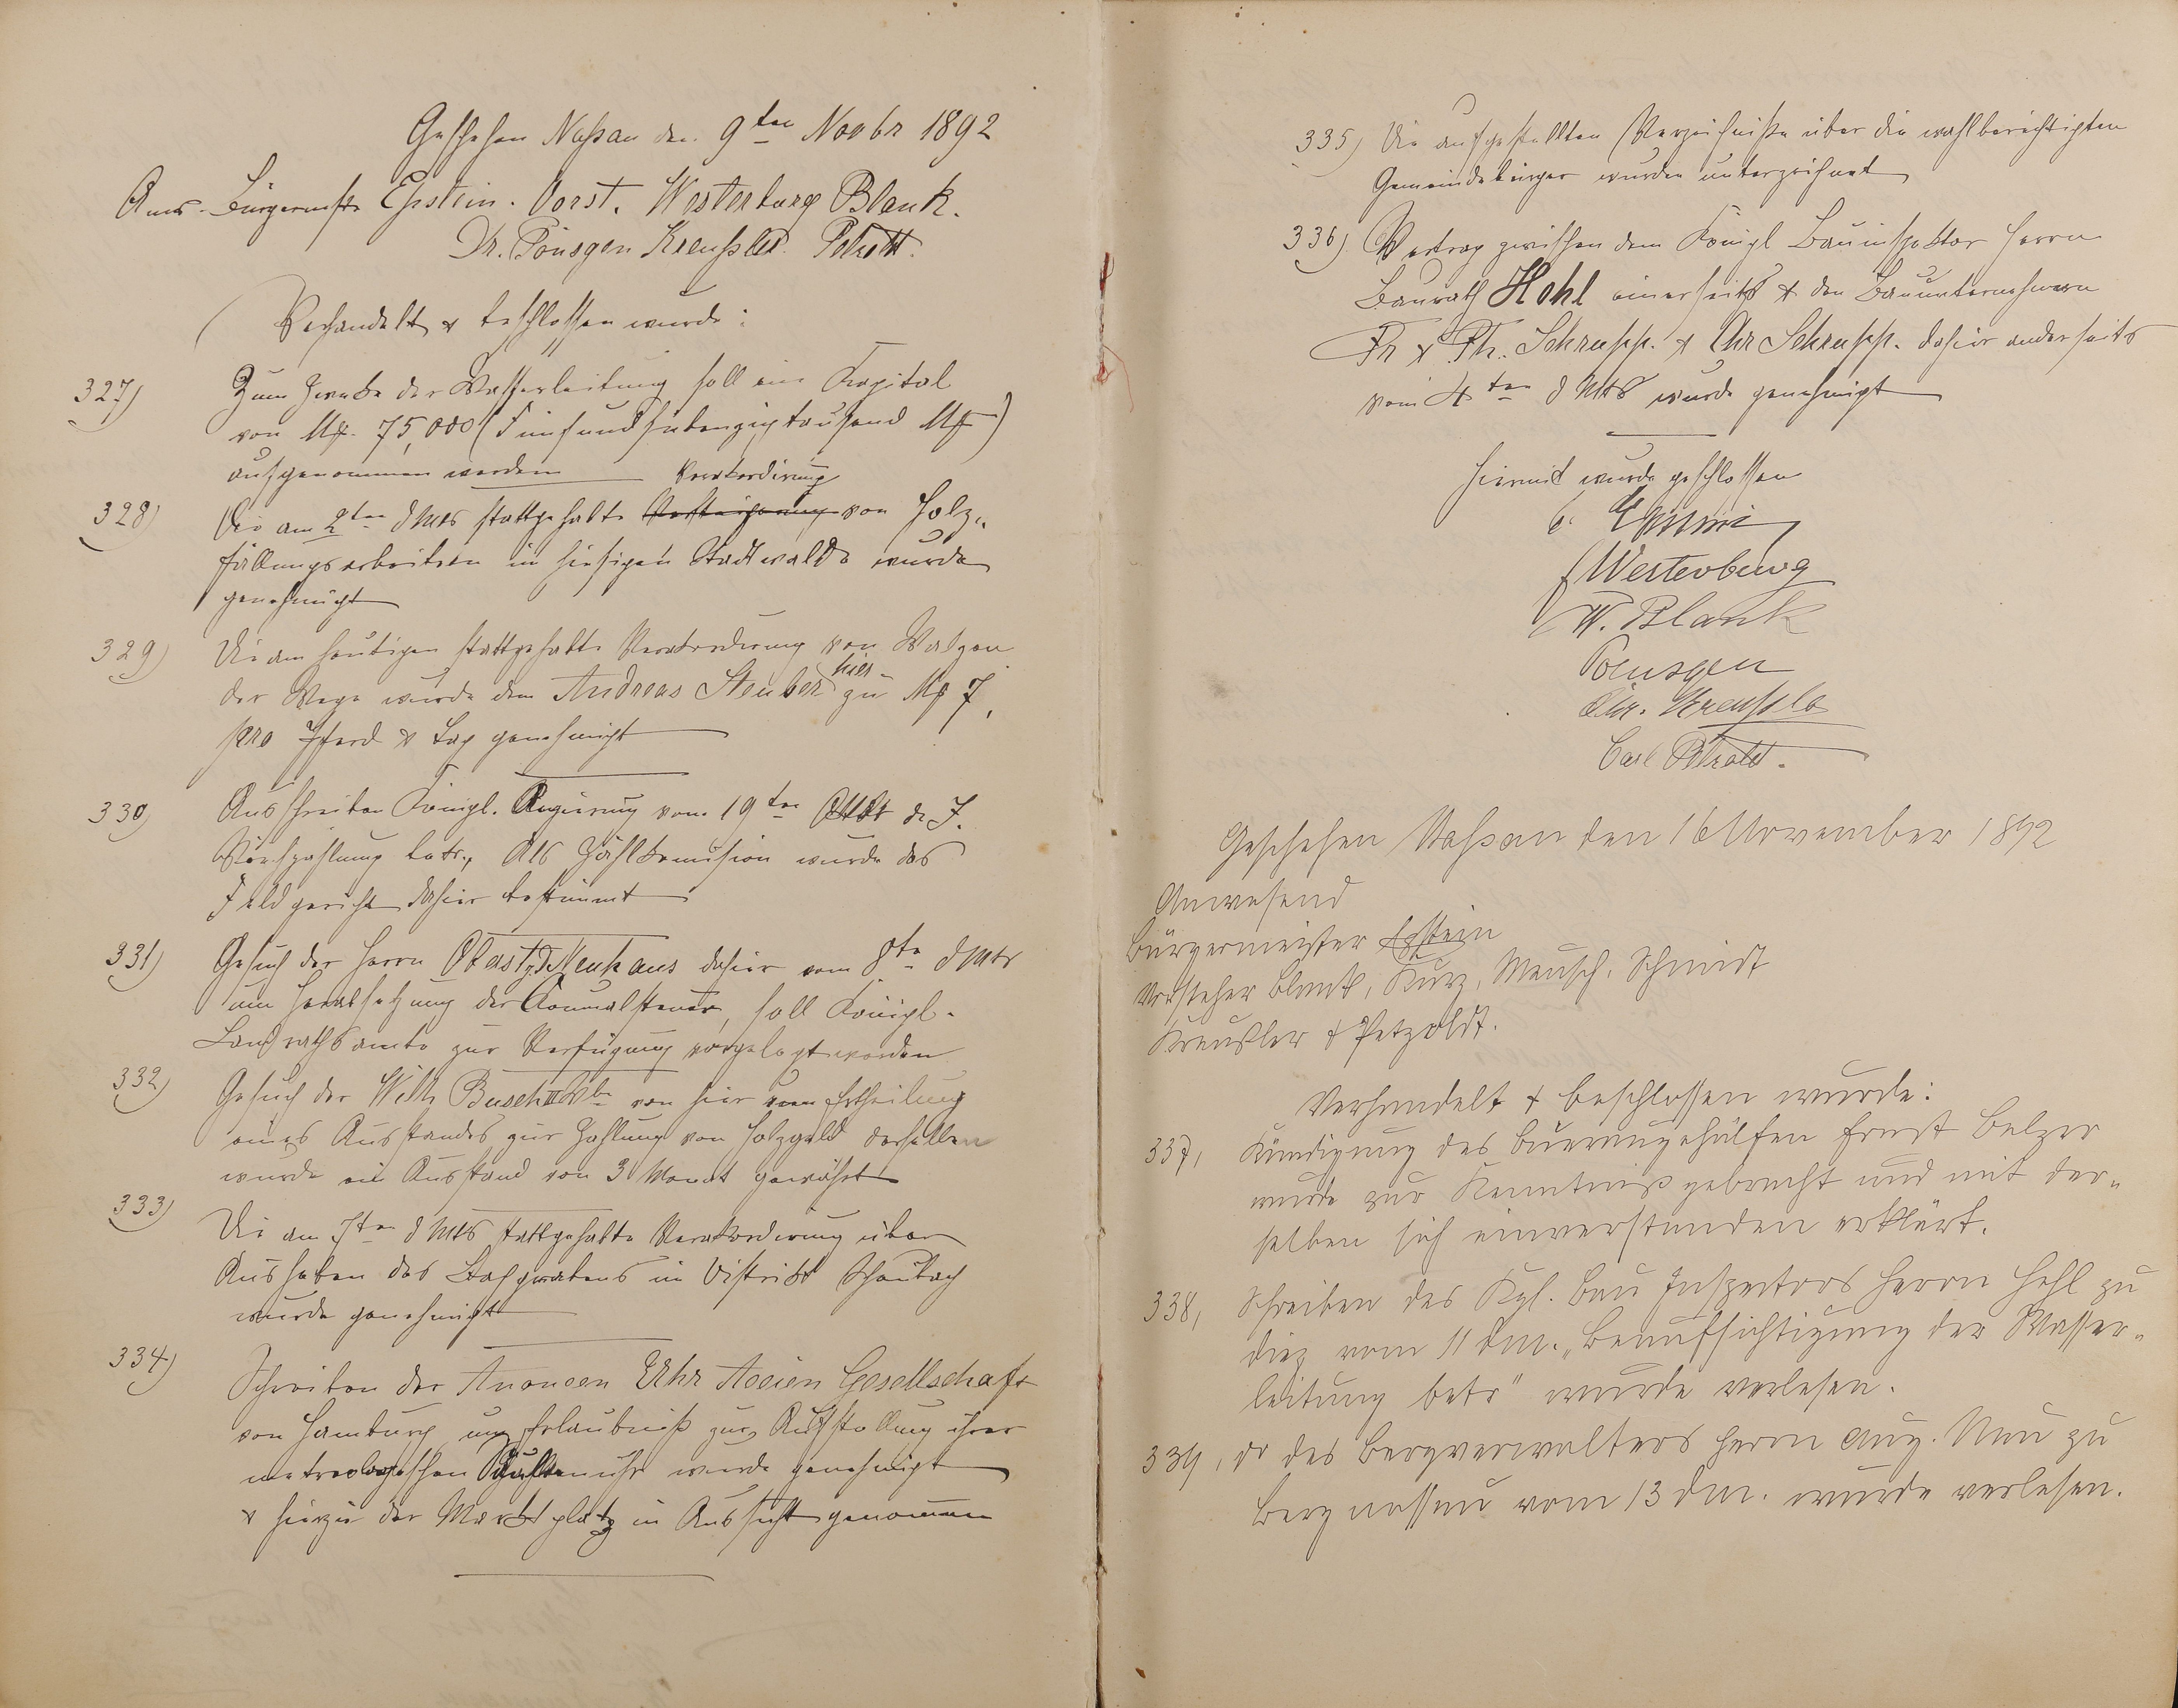 Geschehen Naßau den 9ten Novbr 1892
Anws. Bürgermstr Epstein. Vorst. Westerburg Blank.
Dr. Pönsgen Kreußler Petzoldt.
Verhandelt & beschlossen wurde:
327) Zum Zwecke der Wasserleitung soll ein Kapital
von Mk. 75,000 (Fünfundsiebenzigtausend Mk)
aufgenommen werden
Verakkordirung
328) Die am 2ten d Mts stattgehabte Versteigerung von Holz„
fällungsarbeiten im hiesigen Stadtwalde wurde
genehmigt
329) Die am heutigen stattgehabte Verakkordirung von Walzen
hier
der Wege wurde dem Andreas Steuber zu Mk 7,
pro Pferd & Tag genehmigt
330) Ausschreiben Königl. Regierung vom 19ten Oktbr d. J.
Viehzählung betr., Als Zählkomission wurde das
Feldgericht dahier bestimmt
331) Gesuch des Herrn Oberst z D Neuhaus dahier vom 8ten d Mts
um Herabsetzung der Comunalsteuer, soll Königl.
Landrathsamte zur Verfügung vorgelegt werden
332) Gesuch der Wilh Busch III Wb von hier um Ertheilung
eines Ausstandes zur Zahlung von Holzgeld derselben
wurde ein Ausstand von 3 Monat gewährt
333) Die am 7ten d Mts stattgehabte Verakkordirung über
Ausheben des Bachgrabens im Distrikt Schaubach
wurde genehmigt
334) Schreiben der Anoncen Uhr Accien Gesellschaft
von Hamburg um Erlaubniß zur Aufstellung ihrer
metreologischen Säulenuhr wurde genehmigt
& hierzu der Marktplatz in Aussicht genommen
335) Die aufgestellten Verzeichniße über die wahlberechtigten
Gemeindebürger wurden unterzeichnet
336) Vertrag zwischen dem Königl Bauinspektor Herrn
Baurath Hehl einerseits & den Bauunternehmern
Fr & Ph. Schrupp. & Chr Schrupp. dahier anderseits
vom 4ten d Mts wurde genehmigt
Hiermit wurde geschlossen
Epstein
Westerburg
W. Blank
Poensgen
Chr. Kreußler
Carl Petzoldt.
Geschehen Naßau den 16 November 1892
Anwesend
Bürgermeister Epstein
Vorsteher Blank, Kurz, Mensch, Schmidt
Kreußler & Petzoldt.
Verhandelt & beschlossen wurde:
337, Kündigung des Bureaugehülfen Ernst Balzer
wurde zur Kenntniß gebracht und mit der„
selben sich einverstanden erklärt.
338, Schreiben des Kgl. Bau Inspectors Herrn Hehl zu
Diez vom 11 d m. „Beaufsichtigung der Wasser„
leitung betr" wurde verlesen.
339, do des Bergverwalters Herrn Aug. Neu zu
Bergnassau vom 13 d m. wurde verlesen.